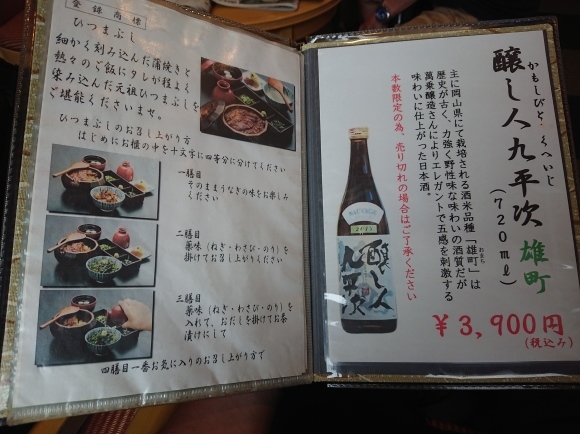 登録商標
ひつまぶし
細かく刻み込んだ蒲焼きと
熱々のご飯にタレが程よく
染み込んだ元祖ひつまぶしを
ご堪能くださいませ。
ひつまぶしのお召し上がり方
はじめにお櫃の中を十文字に四等分に分けてください
一膳目
そのままうなぎの味をお楽しみ
ください
二膳目
薬味(ねぎ・わさび・のり)を
掛けてお召し上がりください
三膳目
薬味(ねぎ・わさび・のり)を
入れて、おだしを掛けてお茶
漬けにして
四膳目一番お気に入りのお召し上がり方で
かもしびと・くへいじ
醸し人九平次 雄町
(720ml)
主に岡山県にて栽培される酒米品種「雄町」は
おまち
歴史が古く、力強く野性味な味わいの酒質だが
萬乗醸造さんによりエレガントで五感を刺激する
味わいに仕上がった日本酒。
本数限定の為、売り切れの場合はご了承ください
醸し人
九平次
¥3,900円
(税込み)